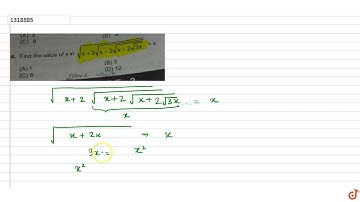 1318885
(A) 3
(C) 9
(D)
4. Find the value of x in √x+2√x+2√x+2√3x = x
(A) 1
(B) 3
(C) 6
(D) 12
√x+2√x+2√x+2√3x ... = x
x
√x+2x → x
3x = x²
x²